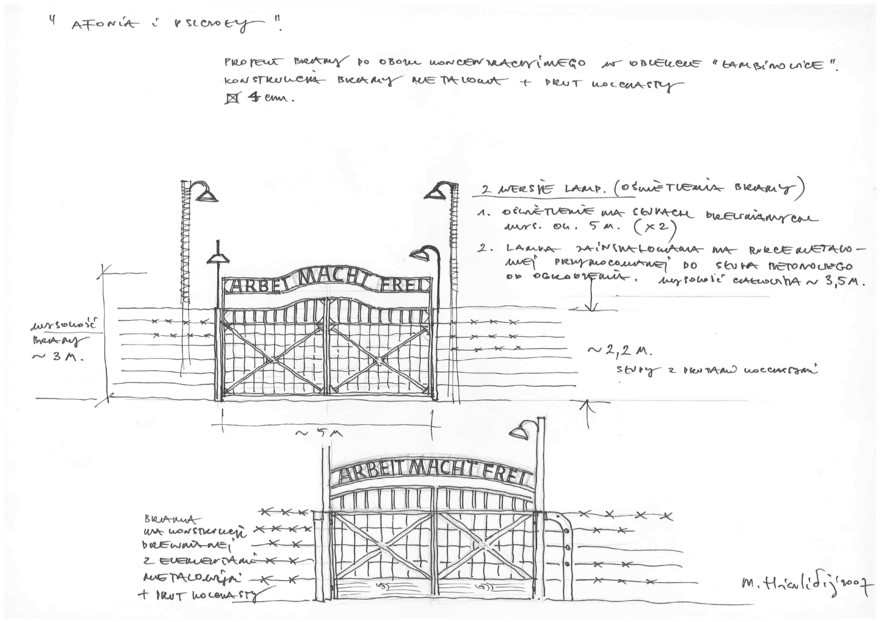 "AFONIA i PSZCZOŁY".
PROJEKT BRAMY DO OBOZU KONCENTRACYJNEGO W OBIEKCIE "ŁAMBINOWICE".
KONSTRUKCJA BRAMY METALOWA + DRUT KOLCZASTY
4 cm.
2 WERSJE LAMP. (OŚWIETLENIA BRAMY)
1. OŚWIETLENIE NA SŁUPACH DREWNIANYCH
WYS. OK. 5 M. (x2)
2. LAMPA ZAINSTALOWANA NA RURCE METALO-
WEJ PRZYMOCOWANEJ DO SŁUPA BETONOWEGO
OGRODZENIA. WYSOKOŚĆ CAŁKOWITA ~ 3,5M.
ARBEIT MACHT FREI
WYSOKOŚĆ
BRAMY
~ 3 M.
~ 2,2 M.
SŁUPY Z DRUTAMI KOLCZASTYMI
~ 5M
ARBEIT MACHT FREI
BRAMA
NA KONSTRUKCJI
DREWNIANEJ
Z ELEMENTAMI
METALOWYMI
+ DRUT KOLCZASTY
M. 2007